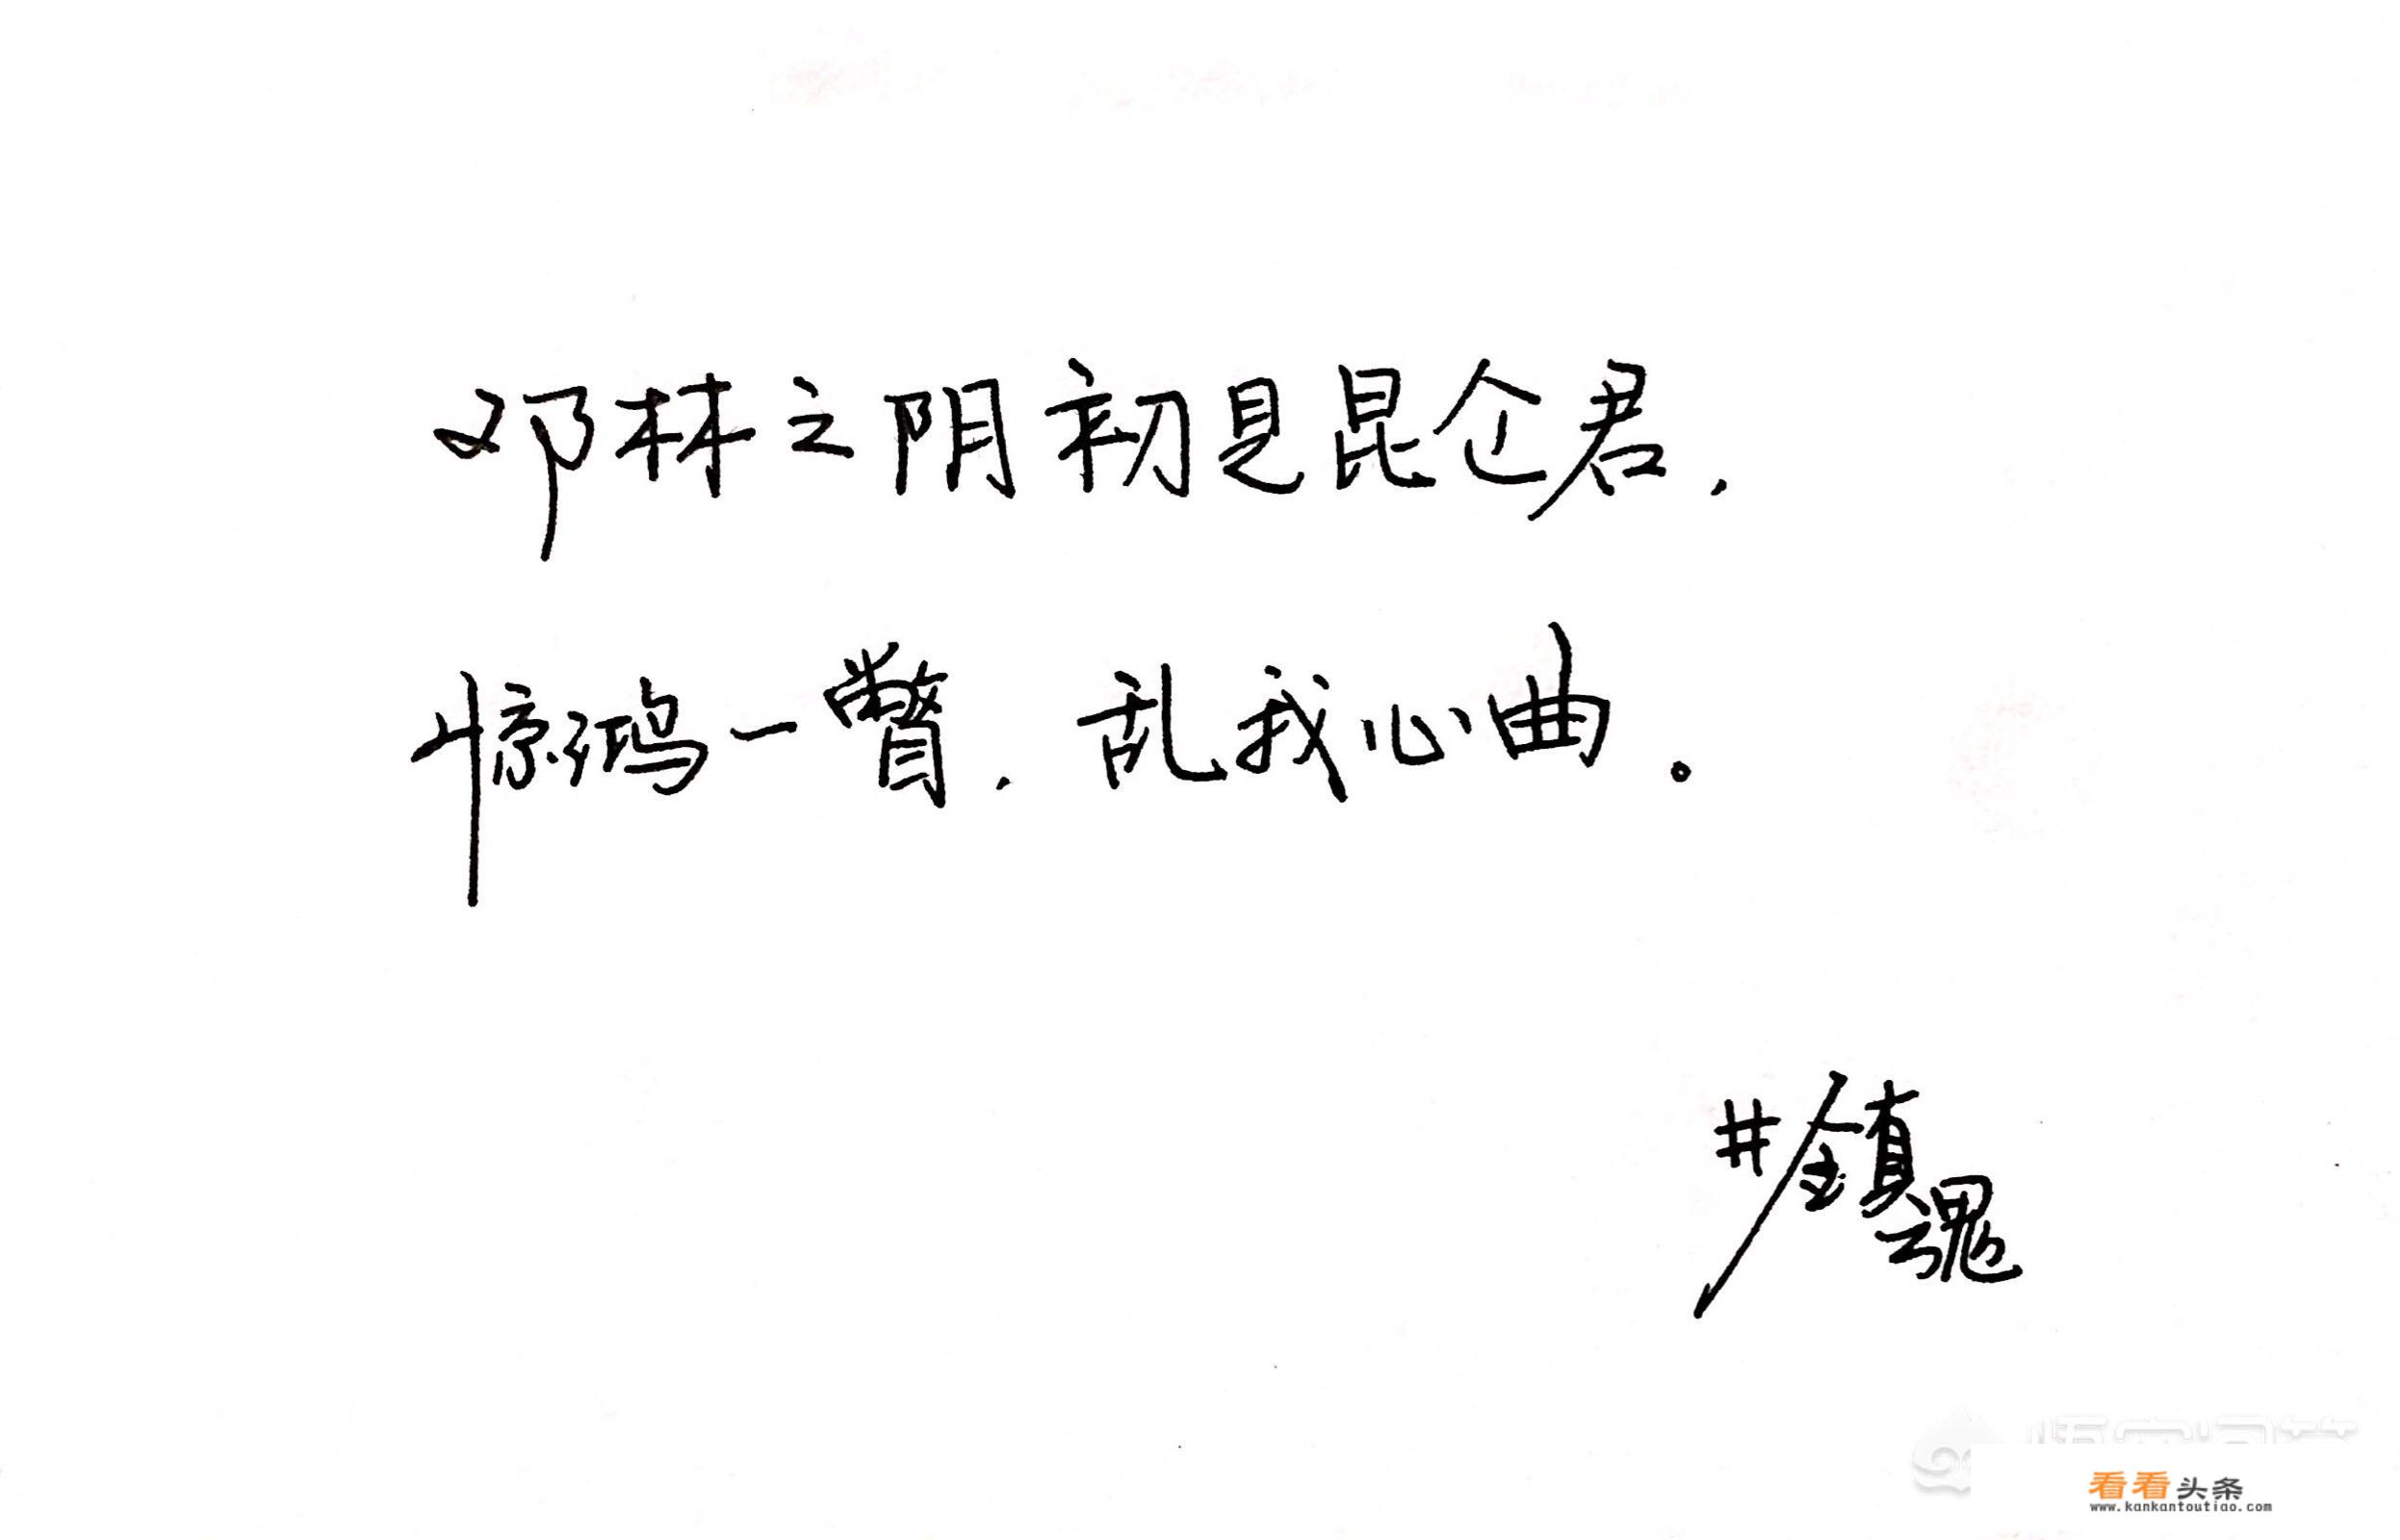 邓林之阴初是昆仑君，
惊鸿一瞥，乱我心曲。
#镇魂
悟空问答
看看头条
www.kankantoutiao.com